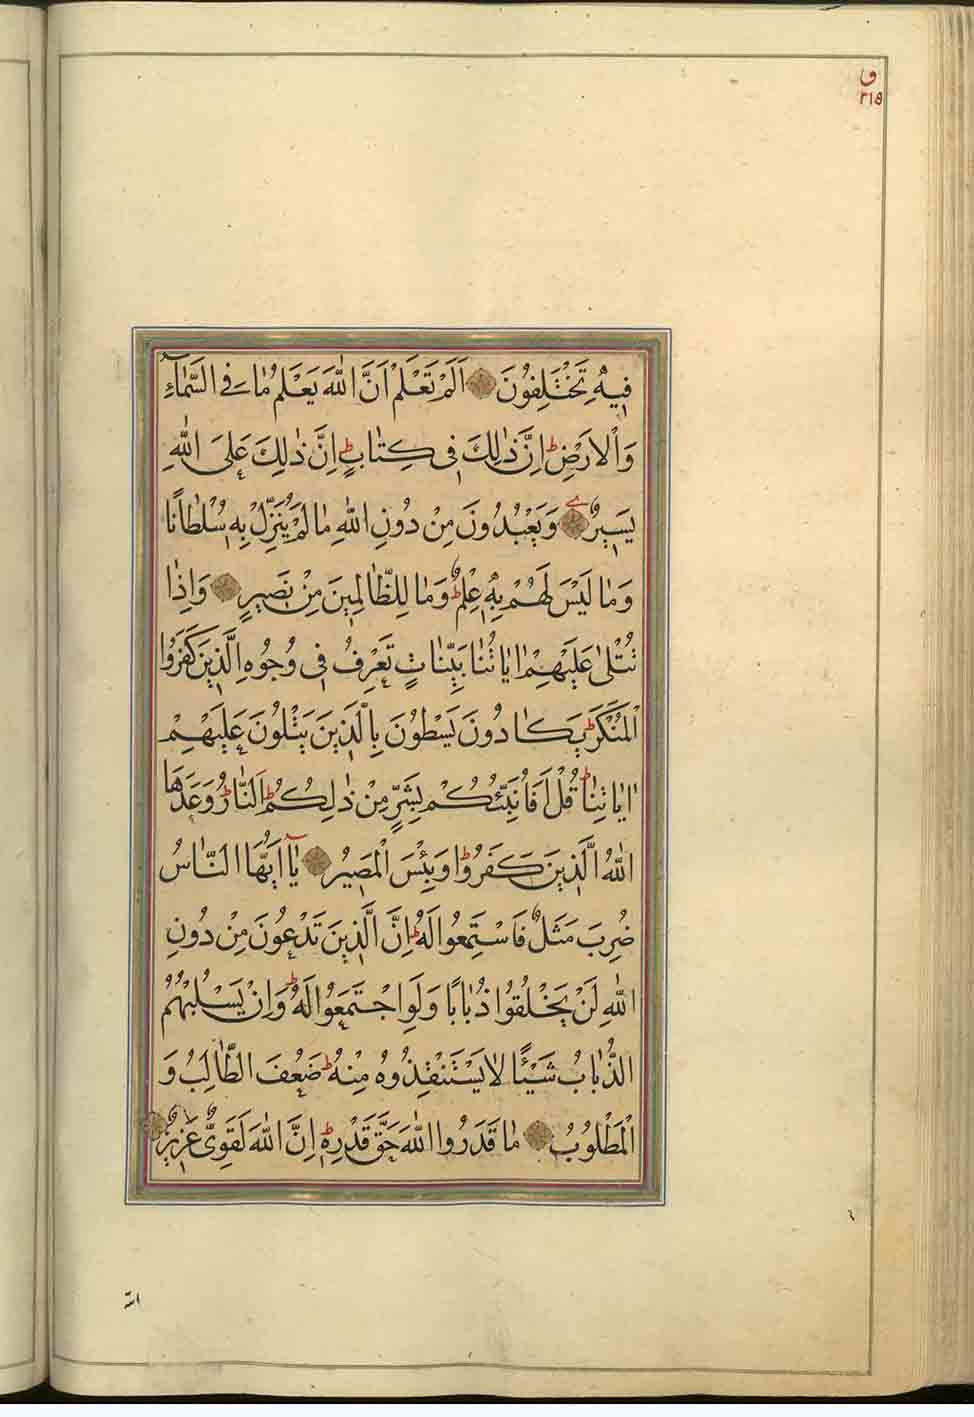 ق
٢١٥
فِيهِ تَخْتَلِفُونَ اَلَمْ تَعْلَمْ اَنَّ اللّٰهَ يَعْلَمُ مٰا فِي السَّمٰآءِ
وَالْاَرْضِ ط اِنَّ ذٰلِكَ فِي كِتٰابٍ ط اِنَّ ذٰلِكَ عَلَى اللّٰهِ
يَسِيرٌ وَيَعْبُدُونَ مِنْ دُونِ اللّٰهِ مٰا لَمْ يُنَزِّلْ بِهِ سُلْطٰانًا
وَمٰا لَيْسَ لَهُمْ بِهِ عِلْمٌ ط وَمٰا لِلظّٰالِمِينَ مِنْ نَصِيرٍ وَاِذٰا
تُتْلىٰ عَلَيْهِمْ اٰيٰاتُنٰا بَيِّنٰاتٍ تَعْرِفُ فِي وُجُوهِ الَّذِينَ كَفَرُوا
الْمُنْكَرَ ط يَكٰادُونَ يَسْطُونَ بِالَّذِينَ يَتْلُونَ عَلَيْهِمْ
اٰيٰاتِنٰا ط قُلْ اَفَاُنَبِّئُكُمْ بِشَرٍّ مِنْ ذٰلِكُمْ ط اَلنّٰارُ ط وَعَدَهَا
اللّٰهُ الَّذِينَ كَفَرُوا ط وَبِئْسَ الْمَصِيرُ يٰآ اَيُّهَا النّٰاسُ
ضُرِبَ مَثَلٌ فَاسْتَمِعُوا لَهُ ط اِنَّ الَّذِينَ تَدْعُونَ مِنْ دُونِ
اللّٰهِ لَنْ يَخْلُقُوا ذُبٰابًا وَلَوِ اجْتَمَعُوا لَهُ ط وَاِنْ يَسْلُبْهُمُ
الذُّبٰابُ شَيْئًا لٰا يَسْتَنْقِذُوهُ مِنْهُ ط ضَعُفَ الطّٰالِبُ وَ
الْمَطْلُوبُ مٰا قَدَرُوا اللّٰهَ حَقَّ قَدْرِهِ ط اِنَّ اللّٰهَ لَقَوِيٌّ عَزِيزٌ
اللّٰه